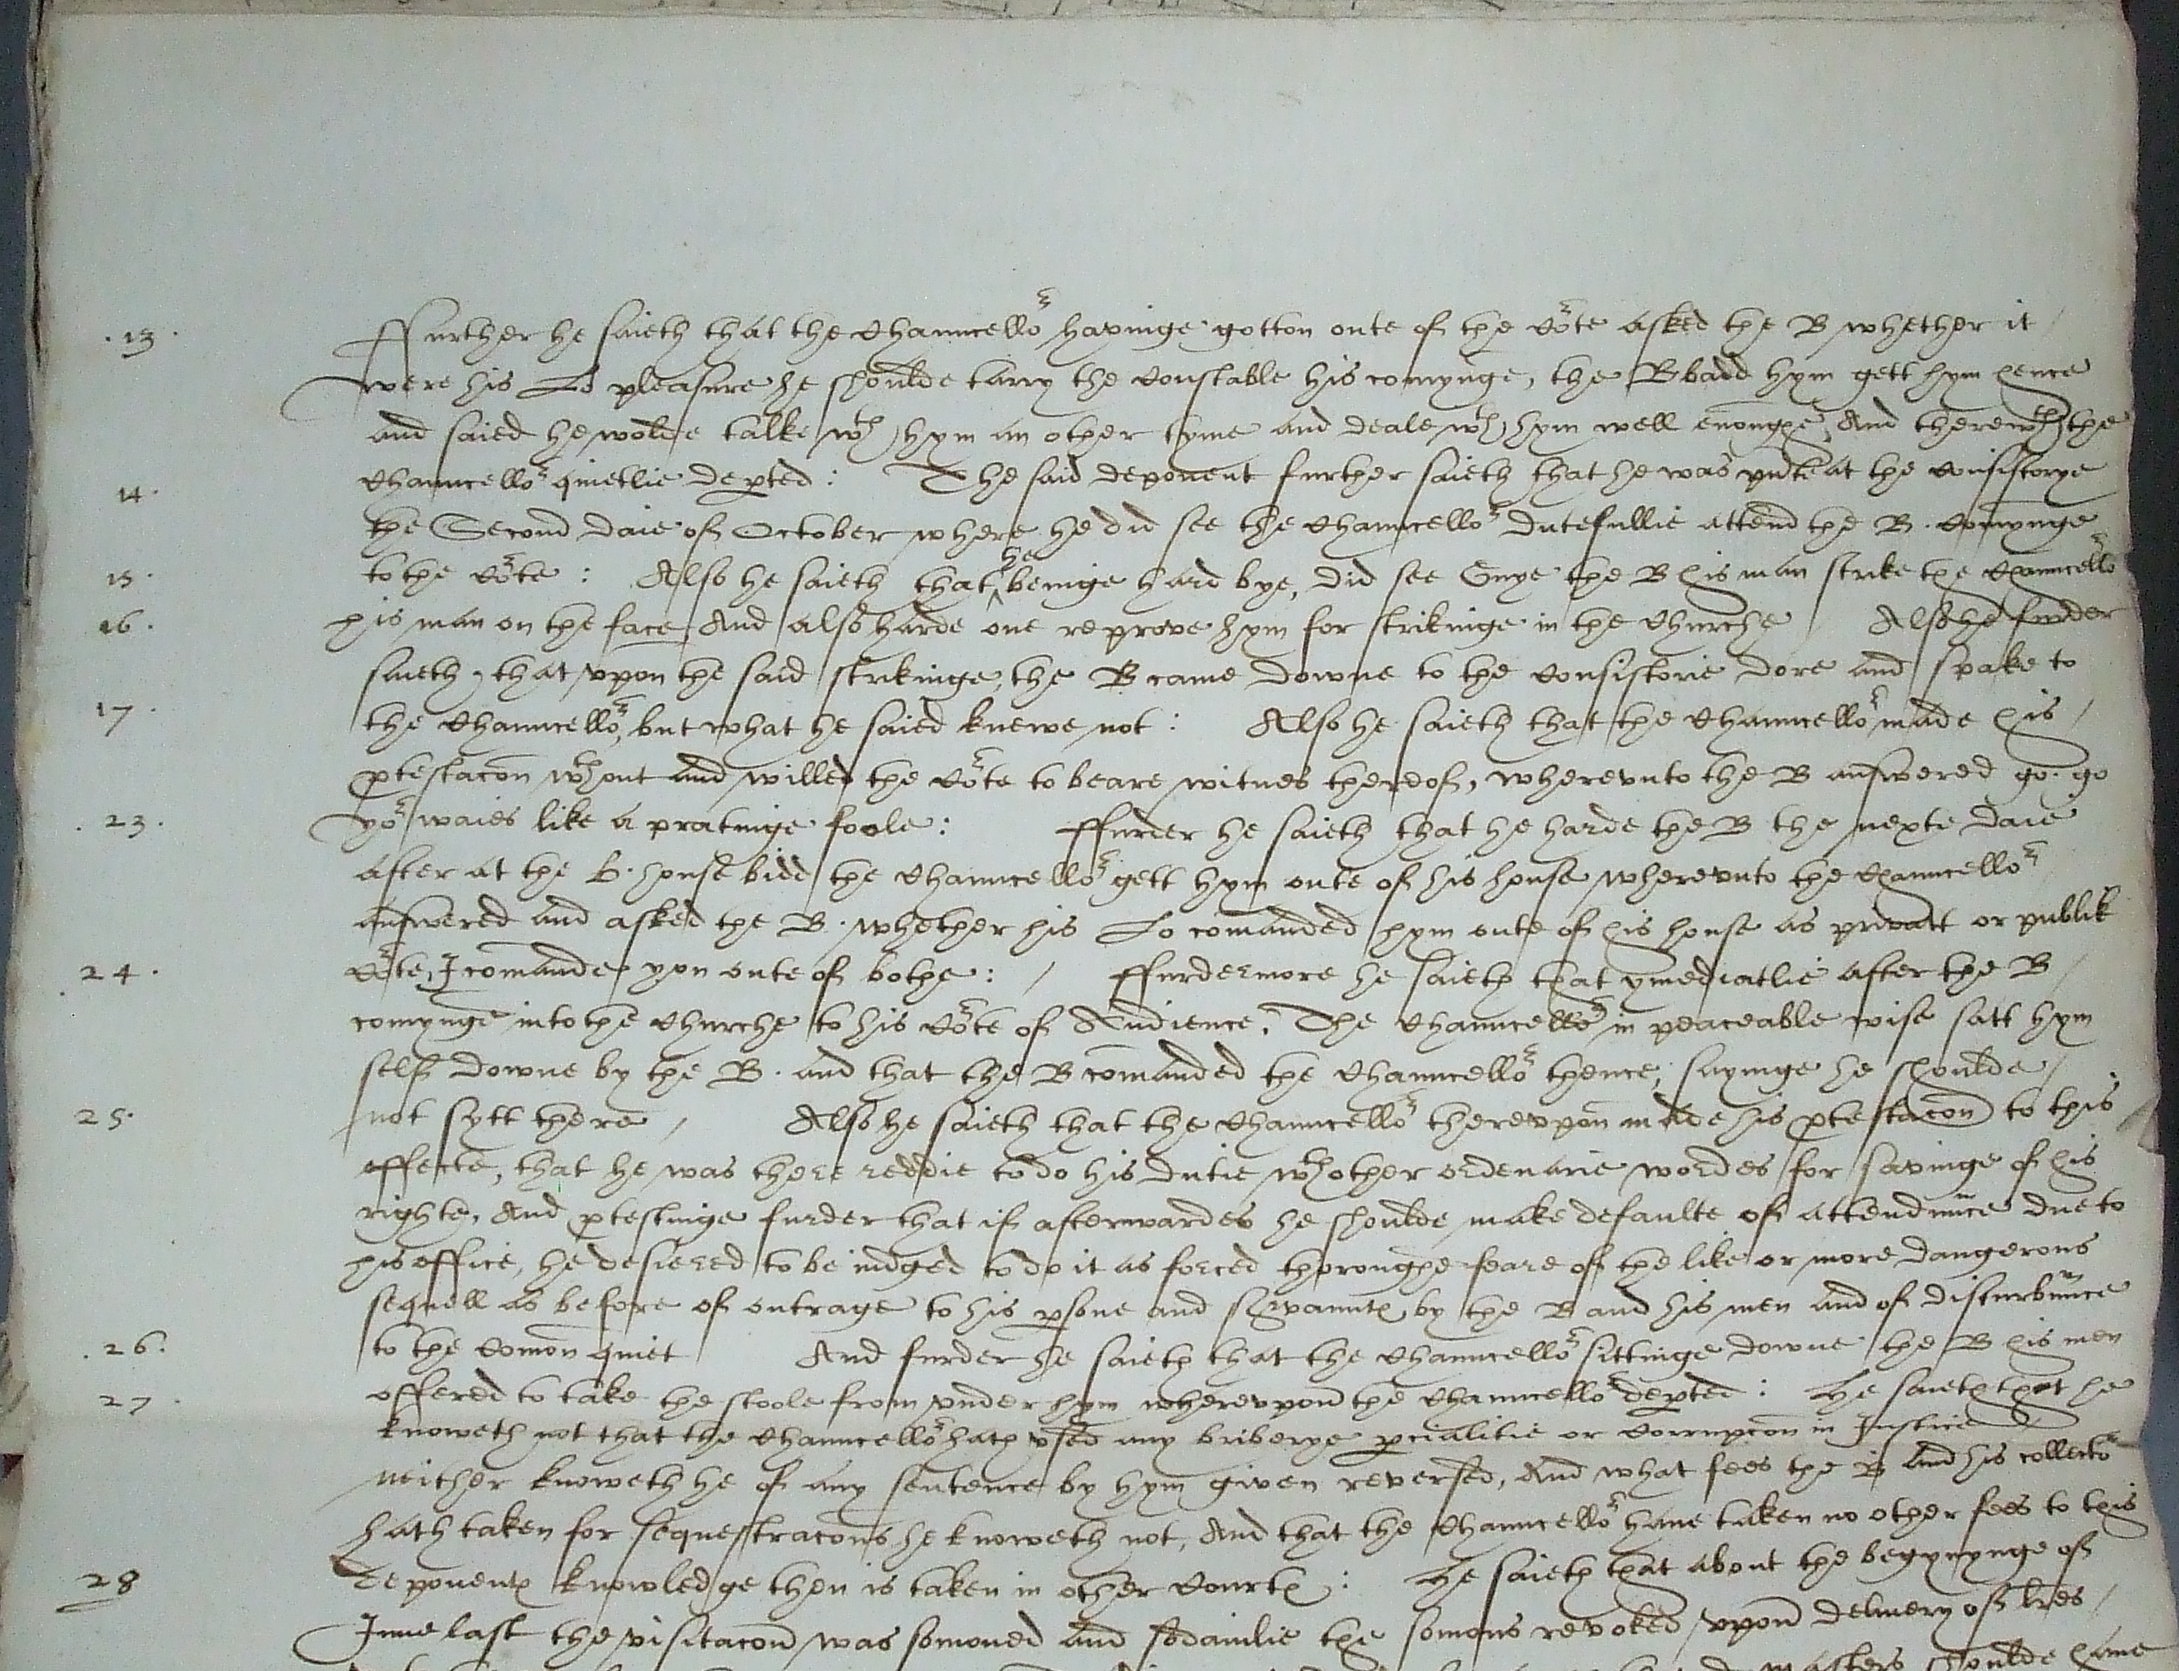 .13. Ffurther he saieth that the Chauncello^r havinge gotton oute of the Co^rte asked the B whether it /
were his Lo pleasure he shoulde tarry the Constable his comynge, the B badd hym gett hym hence
and saied he wolde talke w^th hym an other tyme and deale w^th hym well enoughe, And therew^th the
14. Chauncello^r quietlie depted : The said deponent further saieth that he was pnte at the Consistorye
the Second daie of October where he did see the Chauncello^r dutefullie attend the B. Comynge
15. to the Co^rte : Also he saieth that ^he beinge hard bye, did see Guye the B his man strike the Chauncello^r
16. his man on the face, And also harde one reprove hym for strikinge in the Churche / Also he furder
saieth, that upon the said strikinge, the B came downe to the Consistorie dore and spake to
17. the Chauncello^r, but what he saied knewe not : Also he saieth that the Chauncello^r made his /
ptestacon w^thout and willed the Co^rte to beare witnes thereof, wherevnto the B answered go. go
.23. yo^r waies like a pratinge foole : Ffurder he saieth that he harde the B the nexte daie
after at the B. house bidd the Chauncello^r gett hym oute of his house wherevnto the Chauncello^r
answered and asked the B. whether his Lo comanded hym oute of his house as privatt or publik
24. Co^rte, I comande you oute of bothe : / Ffurdermore he saieth that ymediatlie after the B /
comynge into the Churche to his Co^rte of Audience, The Chauncello^r in peaceable wise satt hym
self downe by the B. and that the B comanded the Chauncello^r thence, sayinge he shoulde /
25. not sytt there / Also he saieth that the Chauncello^r therevpon made his ptestacon to this
effecte, that he was there reddie to do his dutie w^th other ordenarie wordes for savinge of his
righte, And ptestinge furder that if afterwardes he shoulde make defaulte of attendnnce due to
his office, he desiered to be iudged to do it as forced thoroughe feare of the like or more dangerous
sequell as before of outrage to his psone and servauntes by the B and his men and of disturbnnce
.26. to the Comon quiet And furder he saieth that the Chauncello^r sittinge downe the B his men
27. offered to take the stoole from vnder hym wherevpon the Chauncello^r depted : He saieth that he
knoweth not that the Chauncello^r hath vsed any briberye pcialitie or Corrupcon in Justice
neither knoweth he of any sentence by hym given reversed, And what fees the B and his collecto^r
hath taken for sequestracons he knoweth not, And that the Chauncello^r haue taken no other fees to this
28 deponentes knowledge then is taken in other Courtes : He saieth that about the begynynge of
June last the visitacon was somoned and sodainlie the somons revoked, vpon delivery of lres /
shoulde haue